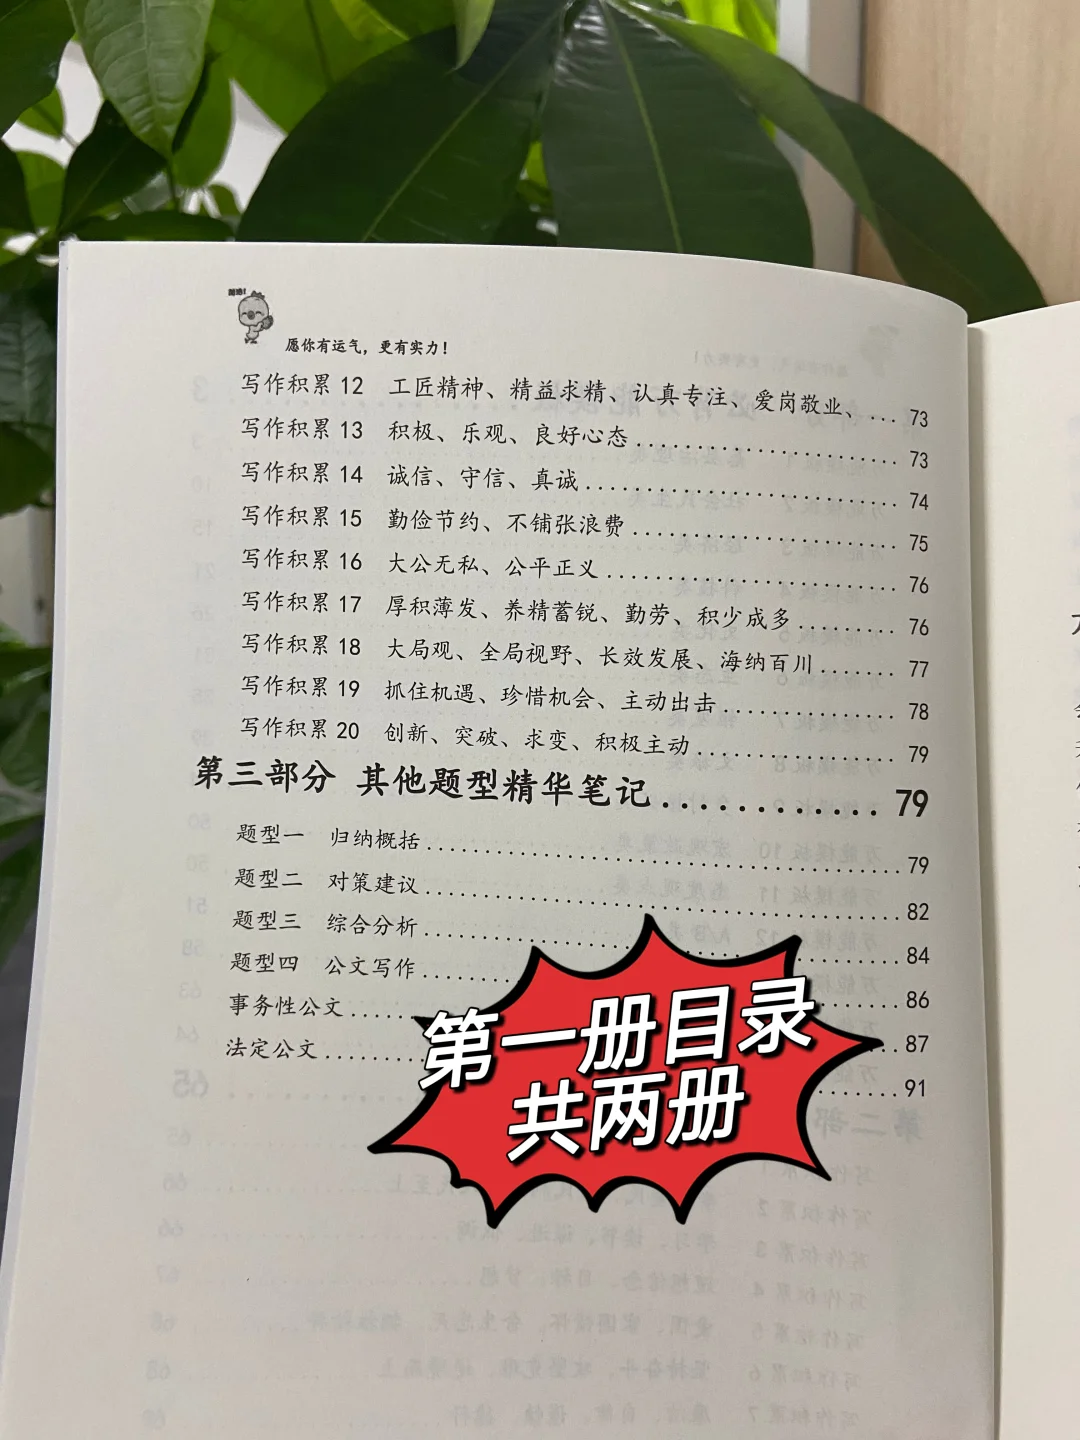 愿你有运气，更有实力！
写作积累 12 工匠精神、精益求精、认真专注、爱岗敬业、... 73
写作积累 13 积极、乐观、良好心态 73
写作积累 14 诚信、守信、真诚 74
写作积累 15 勤俭节约、不铺张浪费 75
写作积累 16 大公无私、公平正义 76
写作积累 17 厚积薄发、养精蓄锐、勤劳、积少成多 76
写作积累 18 大局观、全局视野、长效发展、海纳百川 77
写作积累 19 抓住机遇、珍惜机会、主动出击 78
写作积累 20 创新、突破、求变、积极主动 79
第三部分 其他题型精华笔记 79
题型一 归纳概括 79
题型二 对策建议 82
题型三 综合分析 84
题型四 公文写作 86
事务性公文 87
法定公文 91
第一册目录
共两册